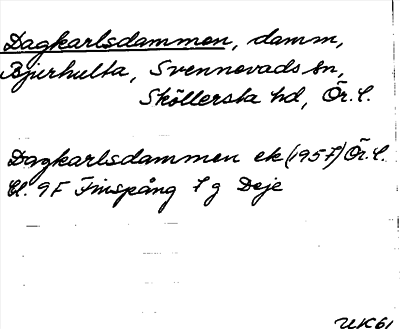 Dagkarlsdammen, damm,
Bjurhulta, Svennevads sn,
Sköllersta hd, Ör. l.
Dagkarlsdammen ek (1957) Ör. l.
bl. 9F Finspång 7 g Deje
UK61